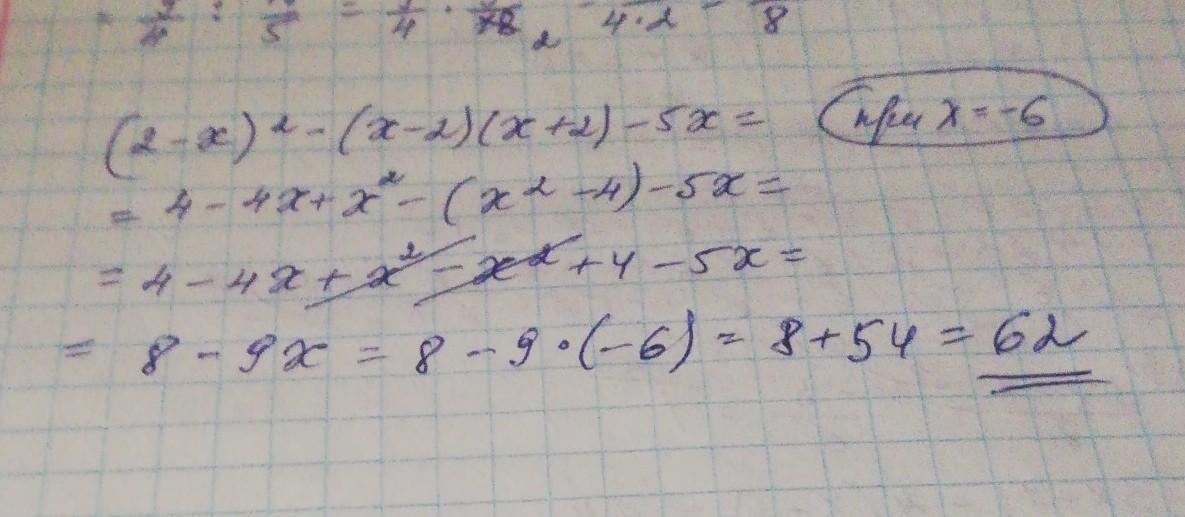 4 : 5 = 4 · 2 4·2 8
(2-x)² - (x-2)(x+2) - 5x = при x = -6
= 4 - 4x + x² - (x² - 4) - 5x =
= 4 - 4x + x² - x² + 4 - 5x =
= 8 - 9x = 8 - 9·(-6) = 8 + 54 = 62